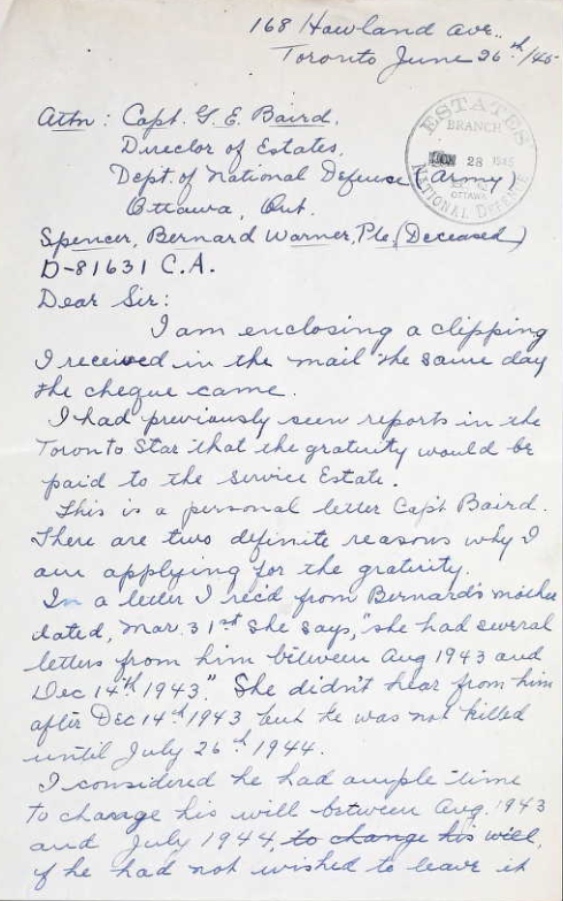 168 Howland Ave.
Toronto June 26th/45
Attn: Capt. G. E. Baird.
Director of Estates,
Dept. of National Defense (Army)
Ottawa, Ont.
ESTATES
BRANCH
28 1945
OTTAWA
NATIONAL DEFENCE
Spencer, Bernard Warner, Pte. (Deceased)
D-81631 C.A.
Dear Sir:
I am enclosing a clipping
I received in the mail the same day
the cheque came.
I had previously seen reports in the
Toronto Star that the gratuity would be
paid to the Service Estate.
This is a personal letter Capt Baird.
There are two definite reasons why I
am applying for the gratuity.
In a letter I rec'd from Bernard's mother
dated, Mar. 31st she says, "she had several
letters from him between Aug 1943 and
Dec 14th 1943." She didn't hear from him
after Dec 14th 1943 but he was not killed
until July 26th 1944.
I considered he had ample time
to change his will between Aug. 1943
and July 1944, to change his will,
if he had not wished to leave it